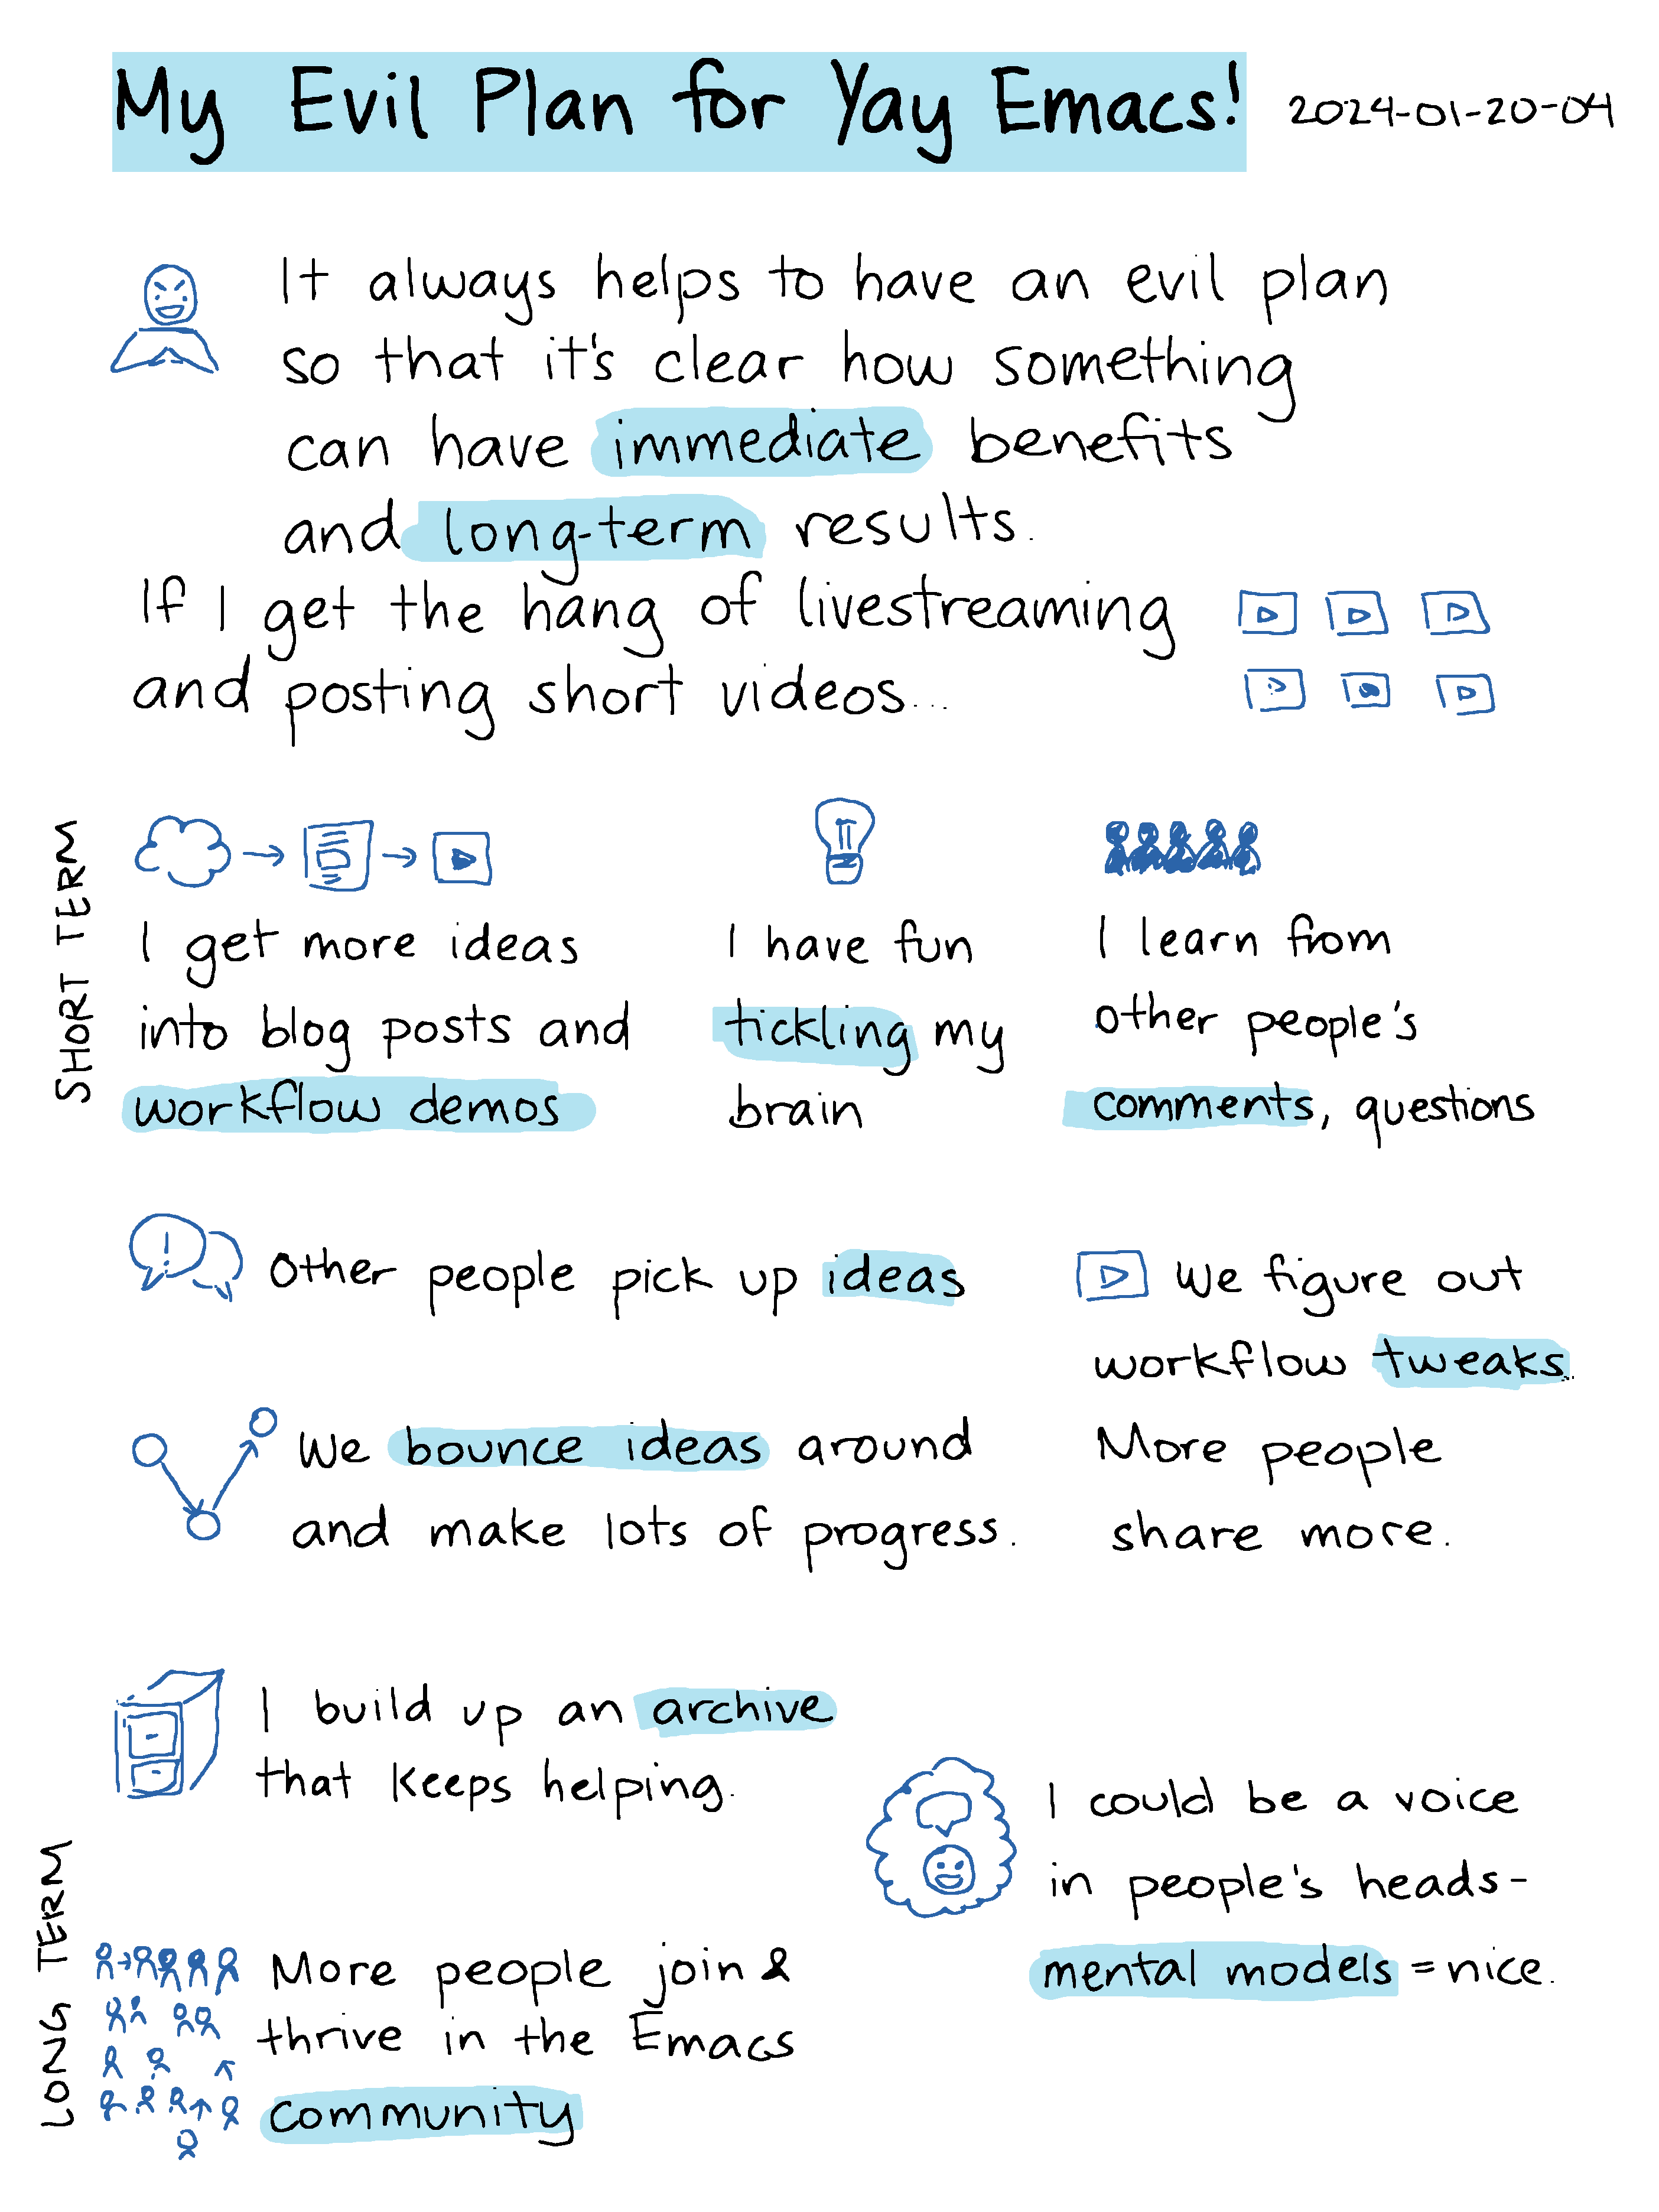 My Evil Plan for Yay Emacs! 2024-01-20-04
It always helps to have an evil plan
so that it's clear how something
can have immediate benefits
and long-term results.
If I get the hang of livestreaming
and posting short videos...
SHORT TERM
I get more ideas
into blog posts and
workflow demos
I have fun
tickling my
brain
I learn from
other people's
comments, questions
Other people pick up ideas
We figure out
workflow tweaks...
We bounce ideas around
and make lots of progress.
More people
share more.
LONG TERM
I build up an archive
that keeps helping.
I could be a voice
in people's heads-
mental models = nice.
More people join &
thrive in the Emacs
community